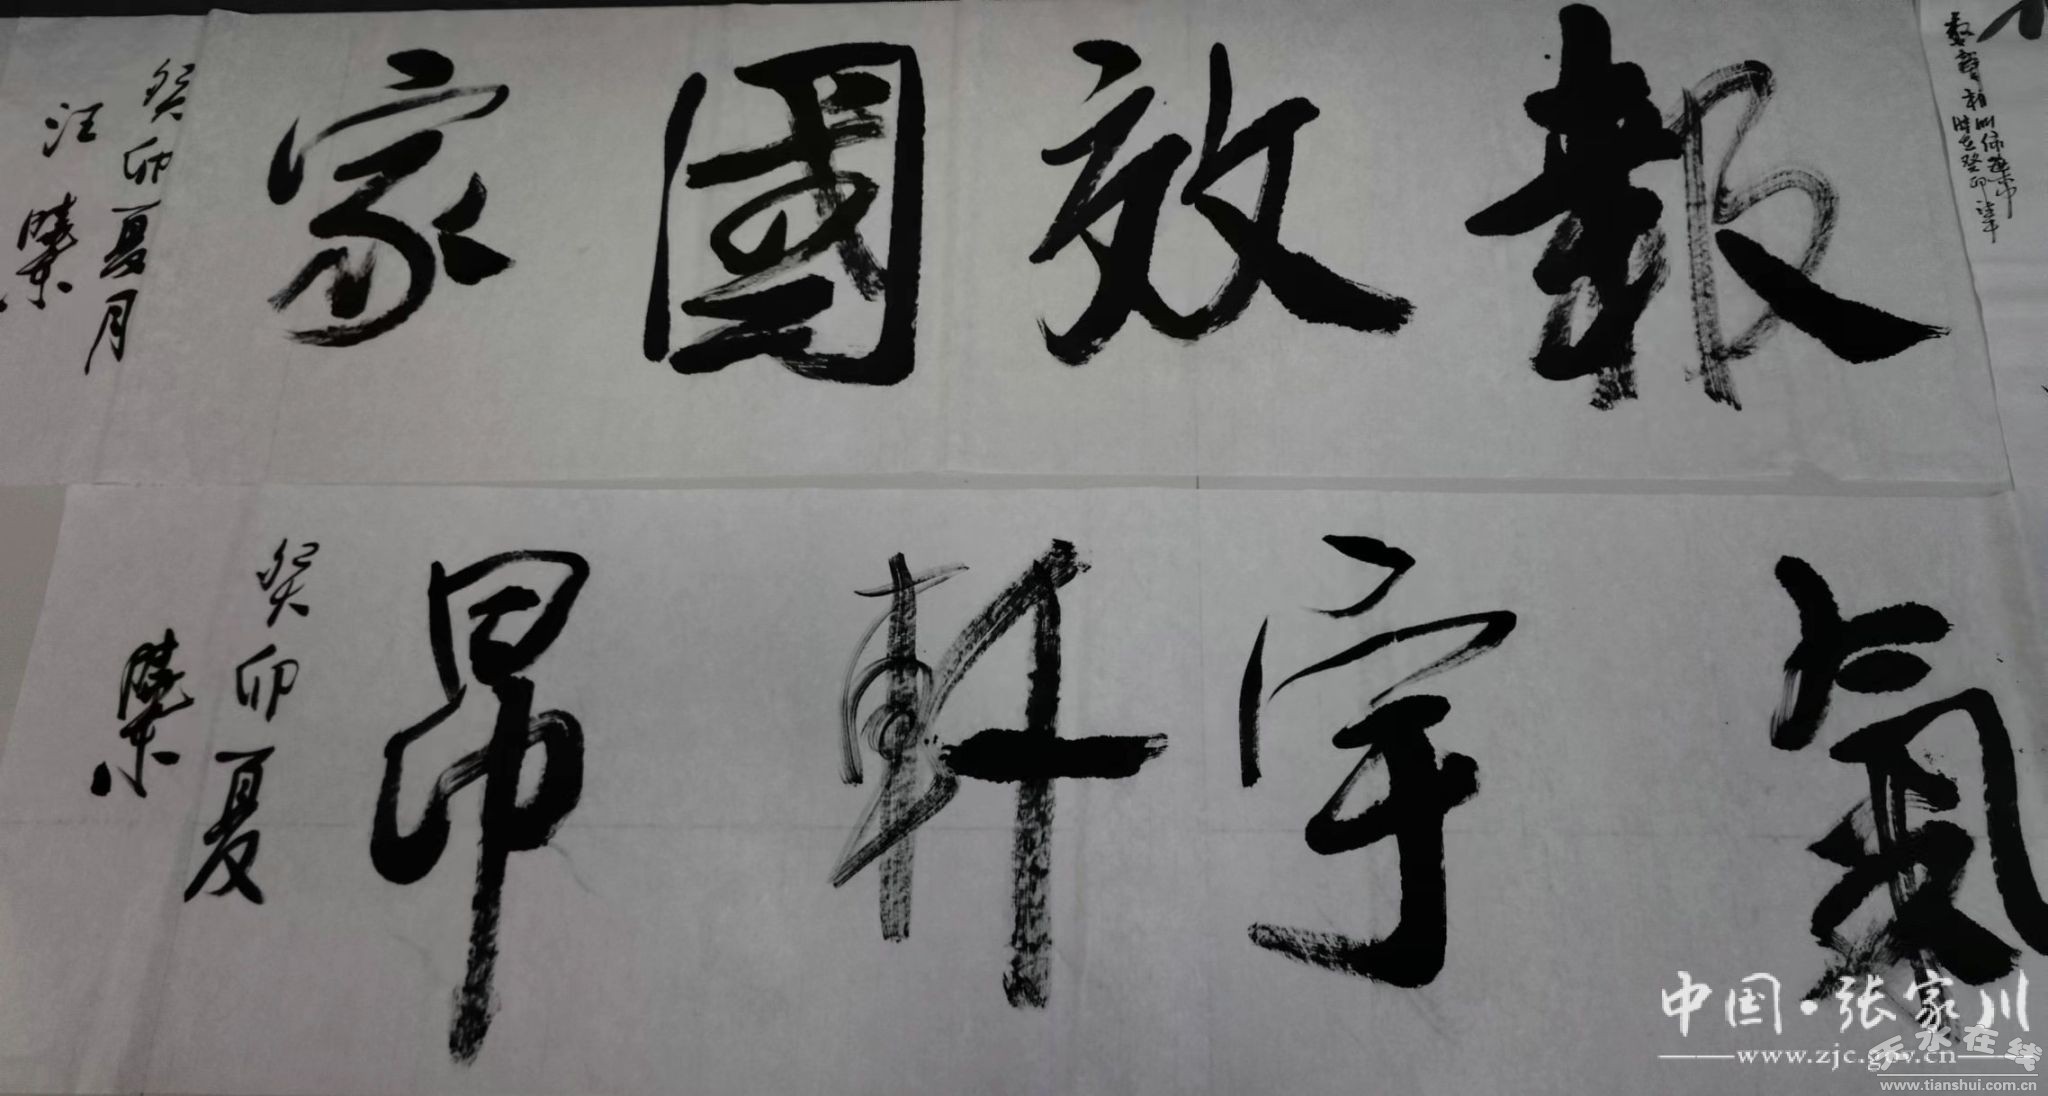 報效國家
癸卯夏月
汪曉棠
氣宇軒昂
癸卯夏
曉棠
中国·张家川
www.zjc.gov.cn
天水在线
www.tianshui.com.cn